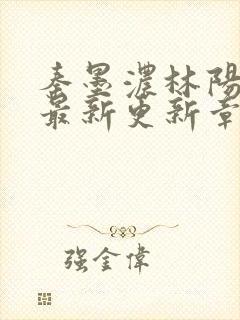 秦墨濃林陽
最新更新章
强金偉